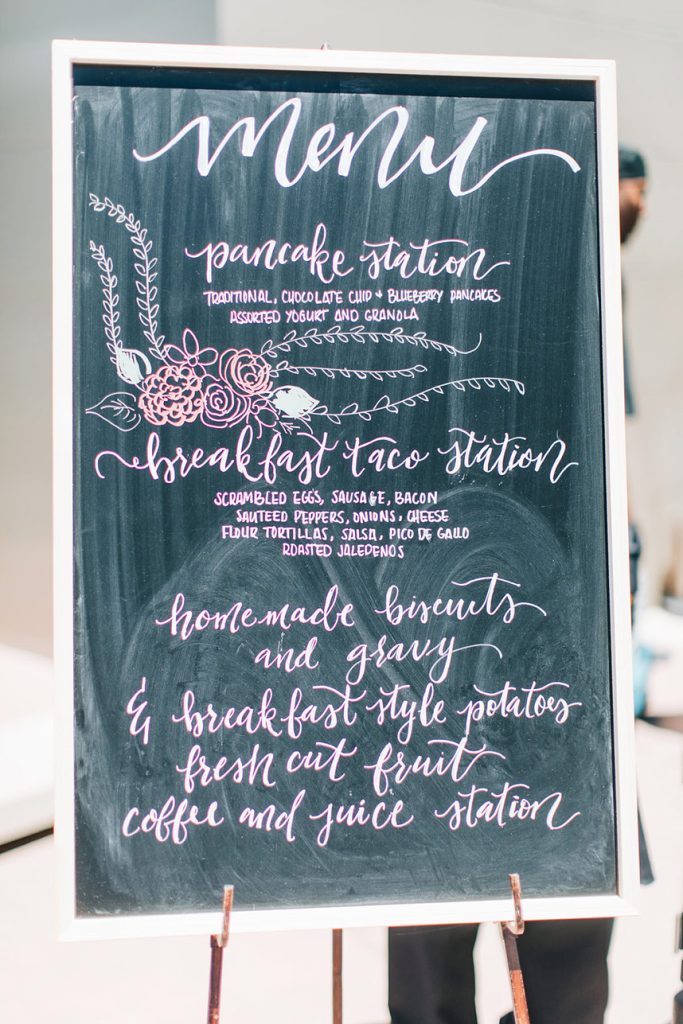 menu
pancake station
TRADITIONAL, CHOCOLATE CHIP + BLUEBERRY PANCAKES
ASSORTED YOGURT AND GRANOLA
breakfast taco station
SCRAMBLED EGGS, SAUSAGE, BACON
SAUTEED PEPPERS, ONIONS, CHEESE
FLOUR TORTILLAS, SALSA, PICO DE GALLO
ROASTED JALEPENOS
homemade biscuits
and gravy
& breakfast style potatoes
fresh cut fruit
coffee and juice station